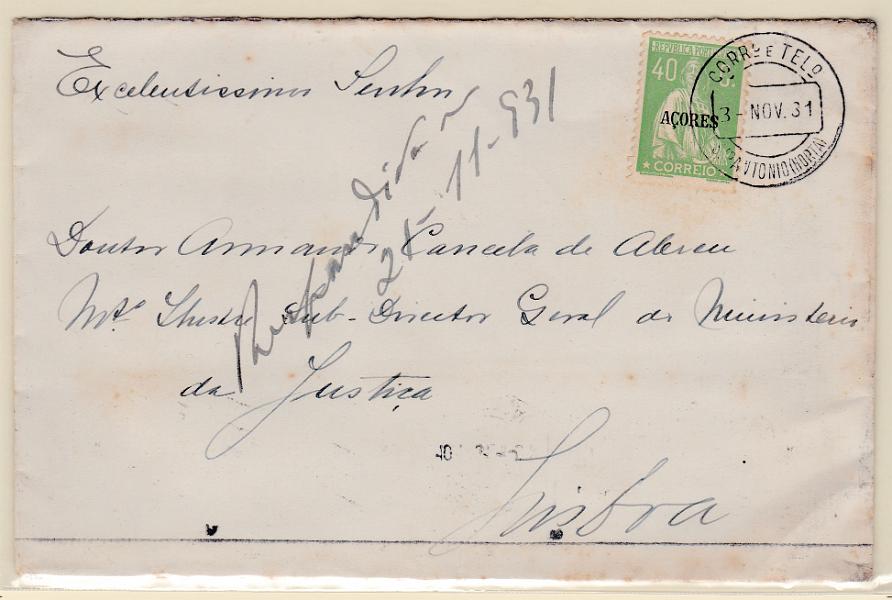 Excelentissimo Senhor
REPUBLICA PORT
40 C.
AÇORES
CORREIO
CORRO E TELO
3-NOV.31
ANTONIO (NORTE)
Respondida a
11-931
Doutor Armando Cancela de Abreu
Mto Ilustre Sub-Director Geral do Ministerio
da Justiça
Lisboa